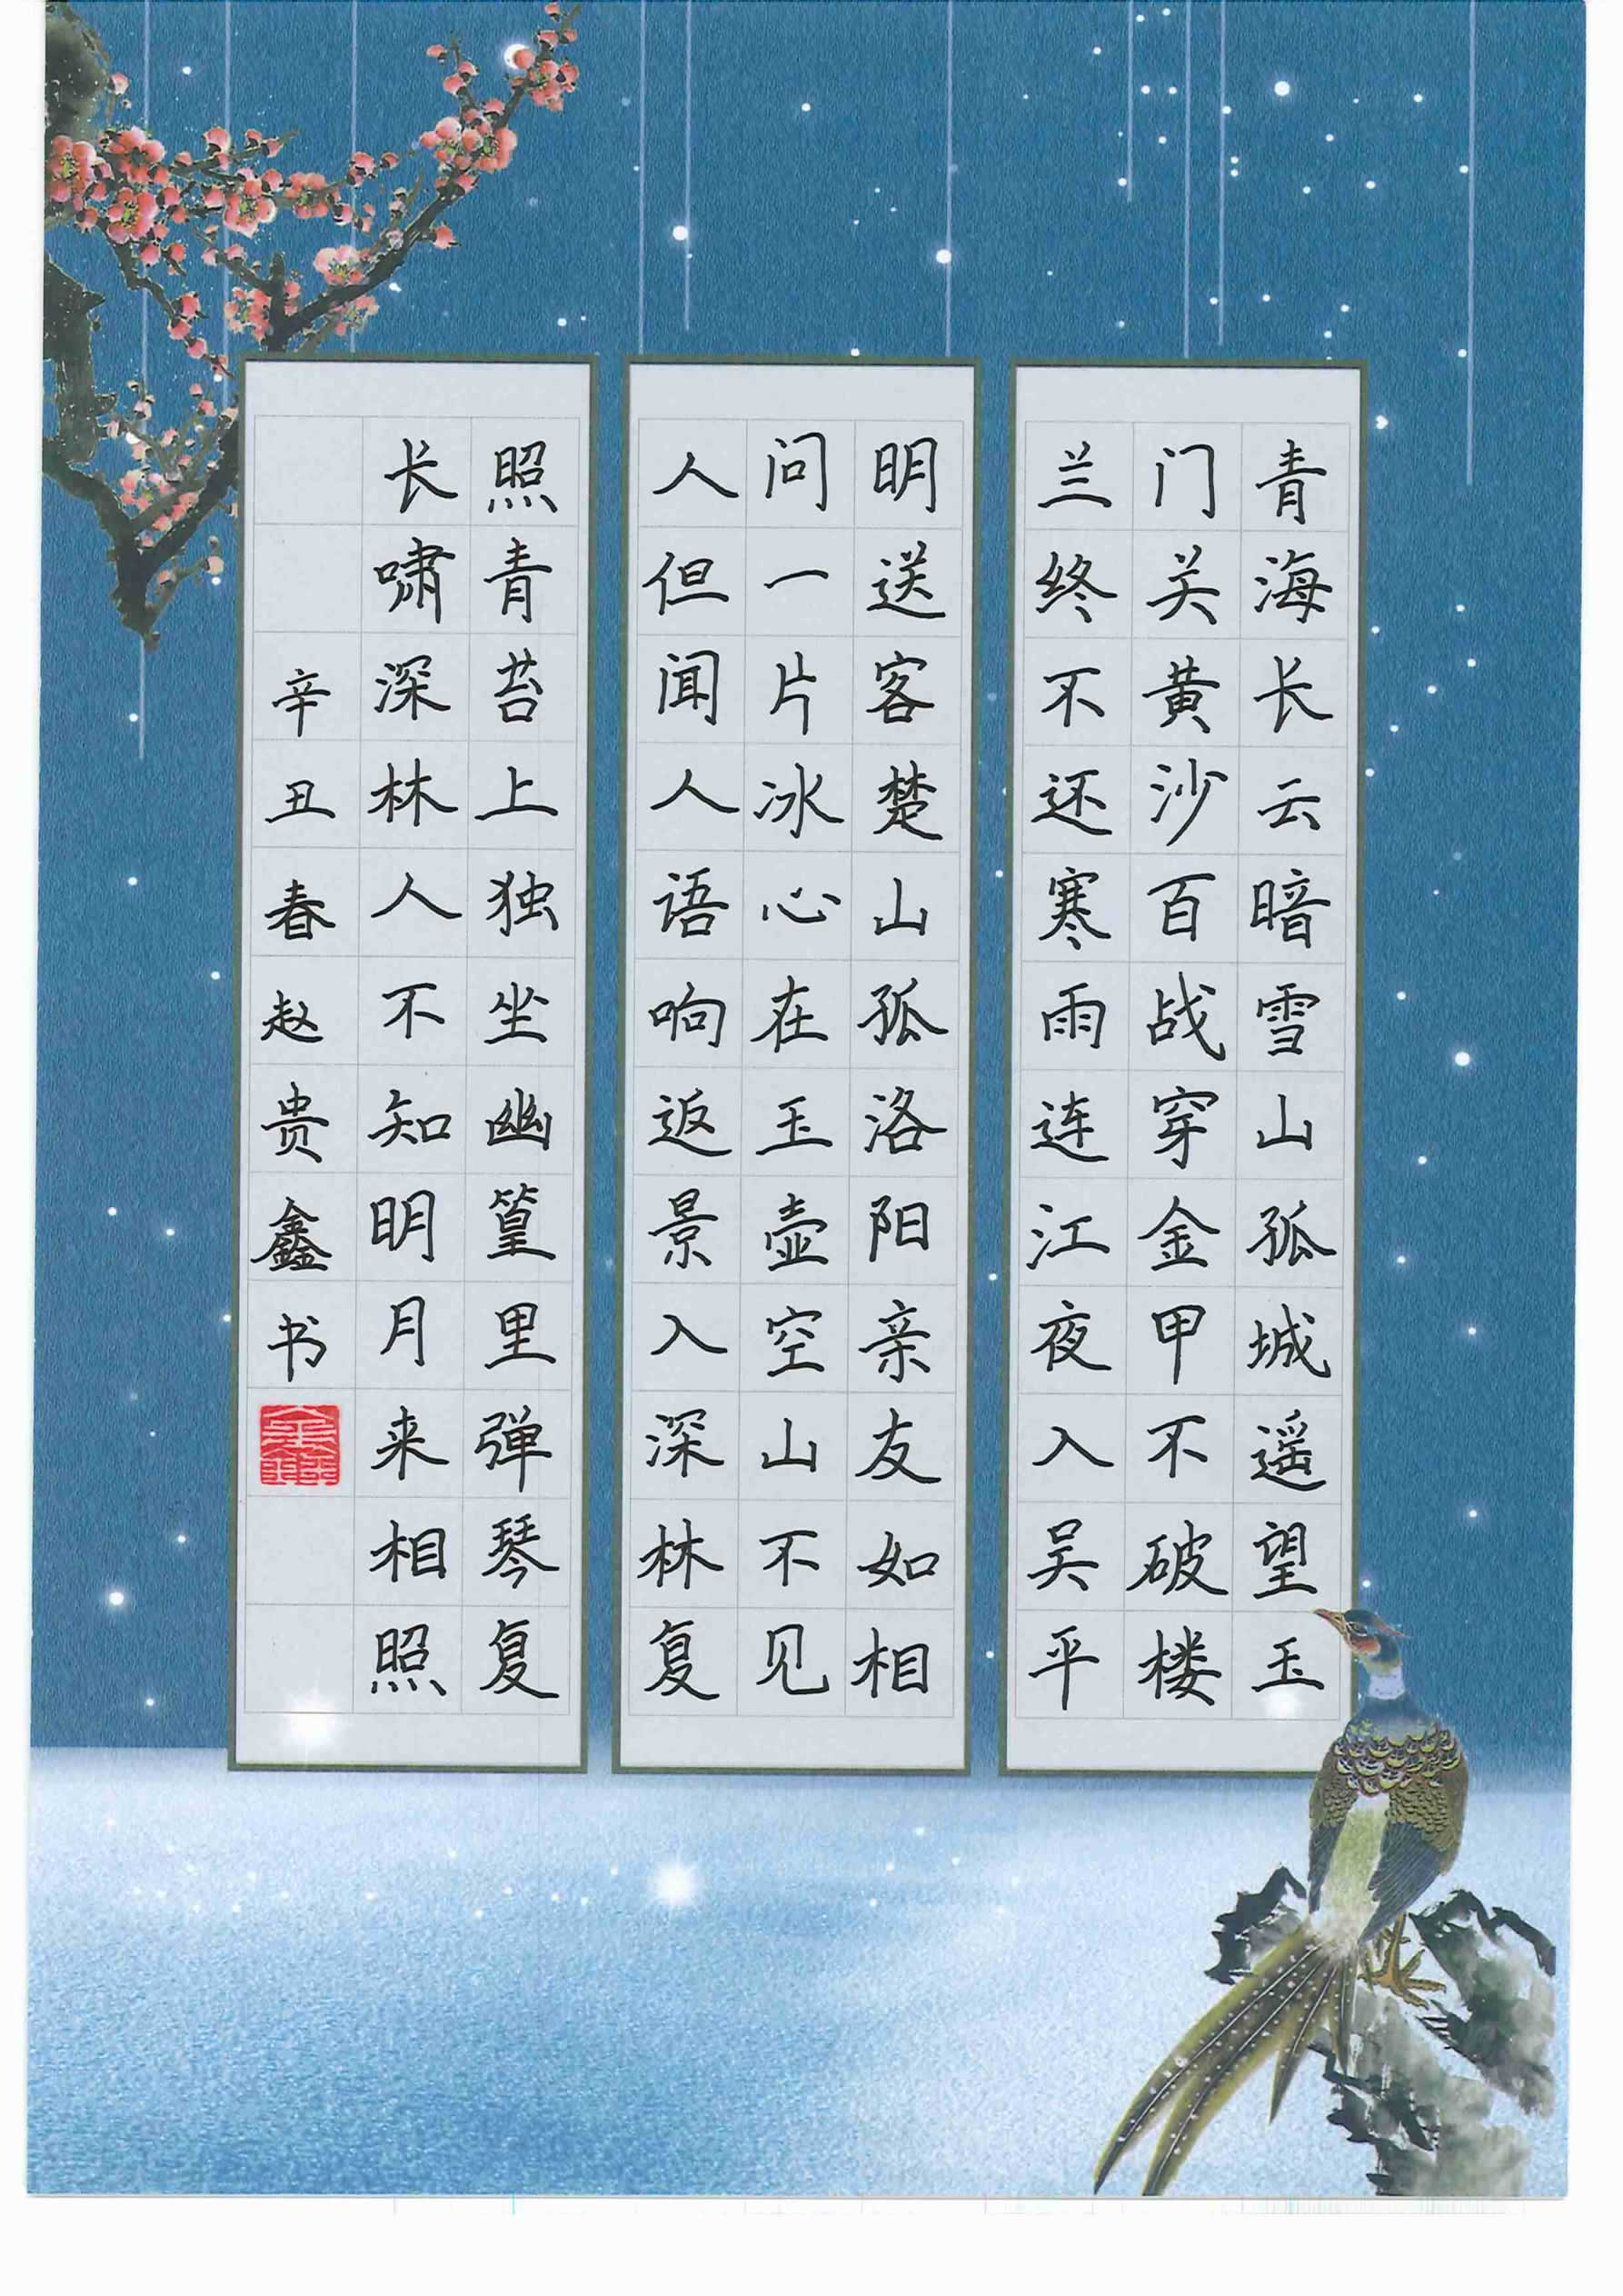 青海长云暗雪山孤城遥望玉
门关黄沙百战穿金甲不破楼
兰终不还寒雨连江夜入吴平
明送客楚山孤洛阳亲友如相
问一片冰心在玉壶空山不见
人但闻人语响返景入深林复
照青苔上独坐幽篁里弹琴复
长啸深林人不知明月来相照
辛丑春赵贵鑫书